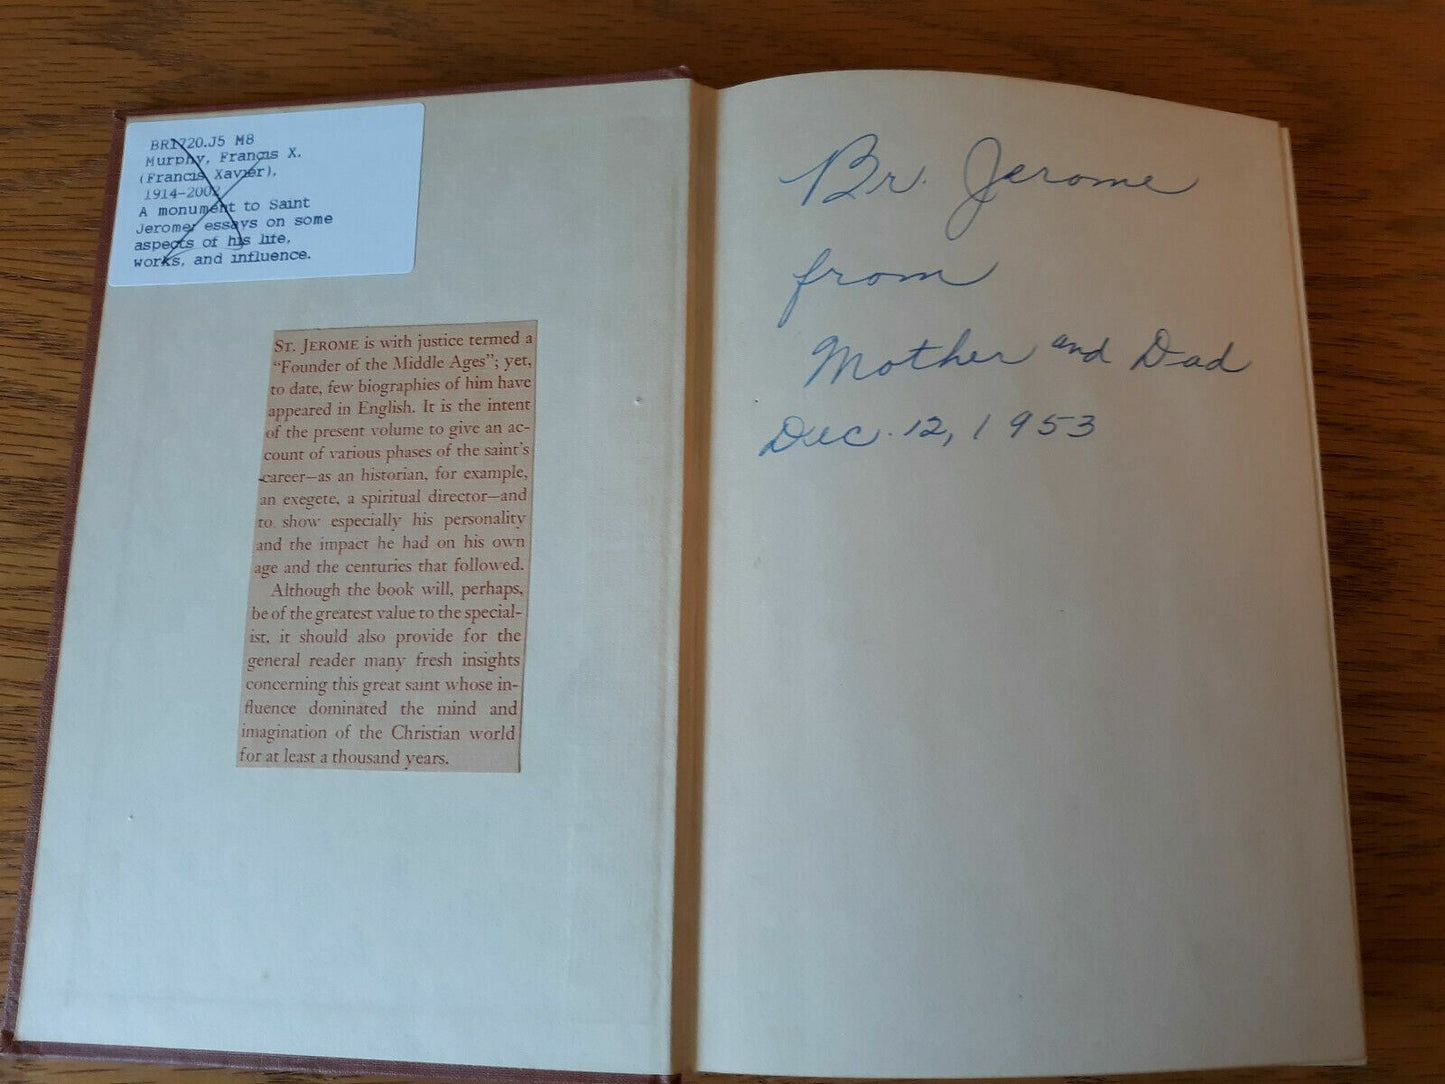 BR1720.J5 M8
Murphy, Francis X.
(Francis Xavier),
1914-2002
A monument to Saint
Jerome; essays on some
aspects of his life,
works, and influence.
ST. JEROME is with justice termed a
"Founder of the Middle Ages"; yet,
to date, few biographies of him have
appeared in English. It is the intent
of the present volume to give an ac-
count of various phases of the saint's
career—as an historian, for example,
an exegete, a spiritual director—and
to show especially his personality
and the impact he had on his own
age and the centuries that followed.
Although the book will, perhaps,
be of the greatest value to the special-
ist, it should also provide for the
general reader many fresh insights
concerning this great saint whose in-
fluence dominated the mind and
imagination of the Christian world
for at least a thousand years.
Br. Jerome
from
Mother and Dad
Dec. 12, 1953